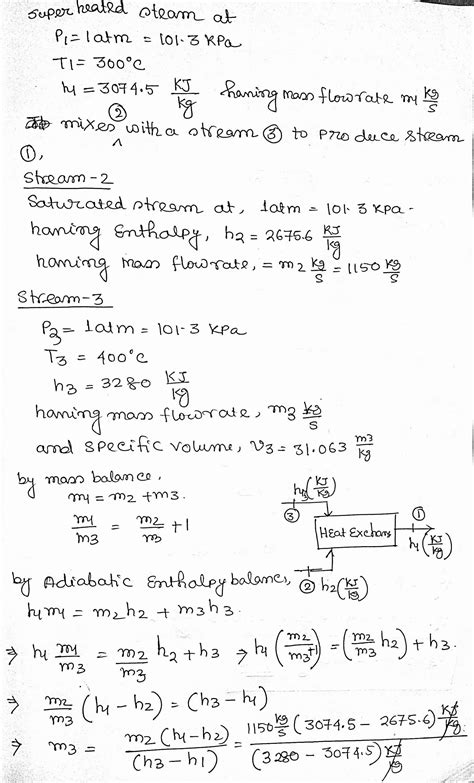 superheated steam at
P1 = 1atm = 101.3 KPa
T1 = 300°C
h1 = 3074.5 KJ/Kg having mass flowrate m1 Kg/s
mixes ② with a stream ③ to produce stream
①,
Stream-2
Saturated stream at, 1atm = 101.3 KPa.
having Enthalpy, h2 = 2675.6 KJ/Kg
having mass flowrate, = m2 Kg/s = 1150 Kg/s
Stream-3
P3 = 1atm = 101.3 KPa
T3 = 400°C
h3 = 3280 KJ/Kg
having mass flowrate, m3 Kg/s
and specific volume, V3 = 31.063 m3/Kg
by mass balance,
m1 = m2 + m3.
m1/m3 = m2/m3 + 1
h3 (KJ/Kg)
③
Heat Exchang
①
h1 (KJ/Kg)
② h2 (KJ/Kg)
by Adiabatic Enthalpy balance,
h1m1 = m2h2 + m3h3.
⇒ h1 m1/m3 = m2/m3 h2 + h3 ⇒ h1 (m2/m3 +1) = (m2/m3 h2) + h3.
⇒ m2/m3 (h1 - h2) = (h3 - h1)
⇒ m3 = m2 (h1 - h2)/(h3 - h1) = 1150 Kg/s (3074.5 - 2675.6) KJ/Kg/(3280 - 3074.5) KJ/Kg